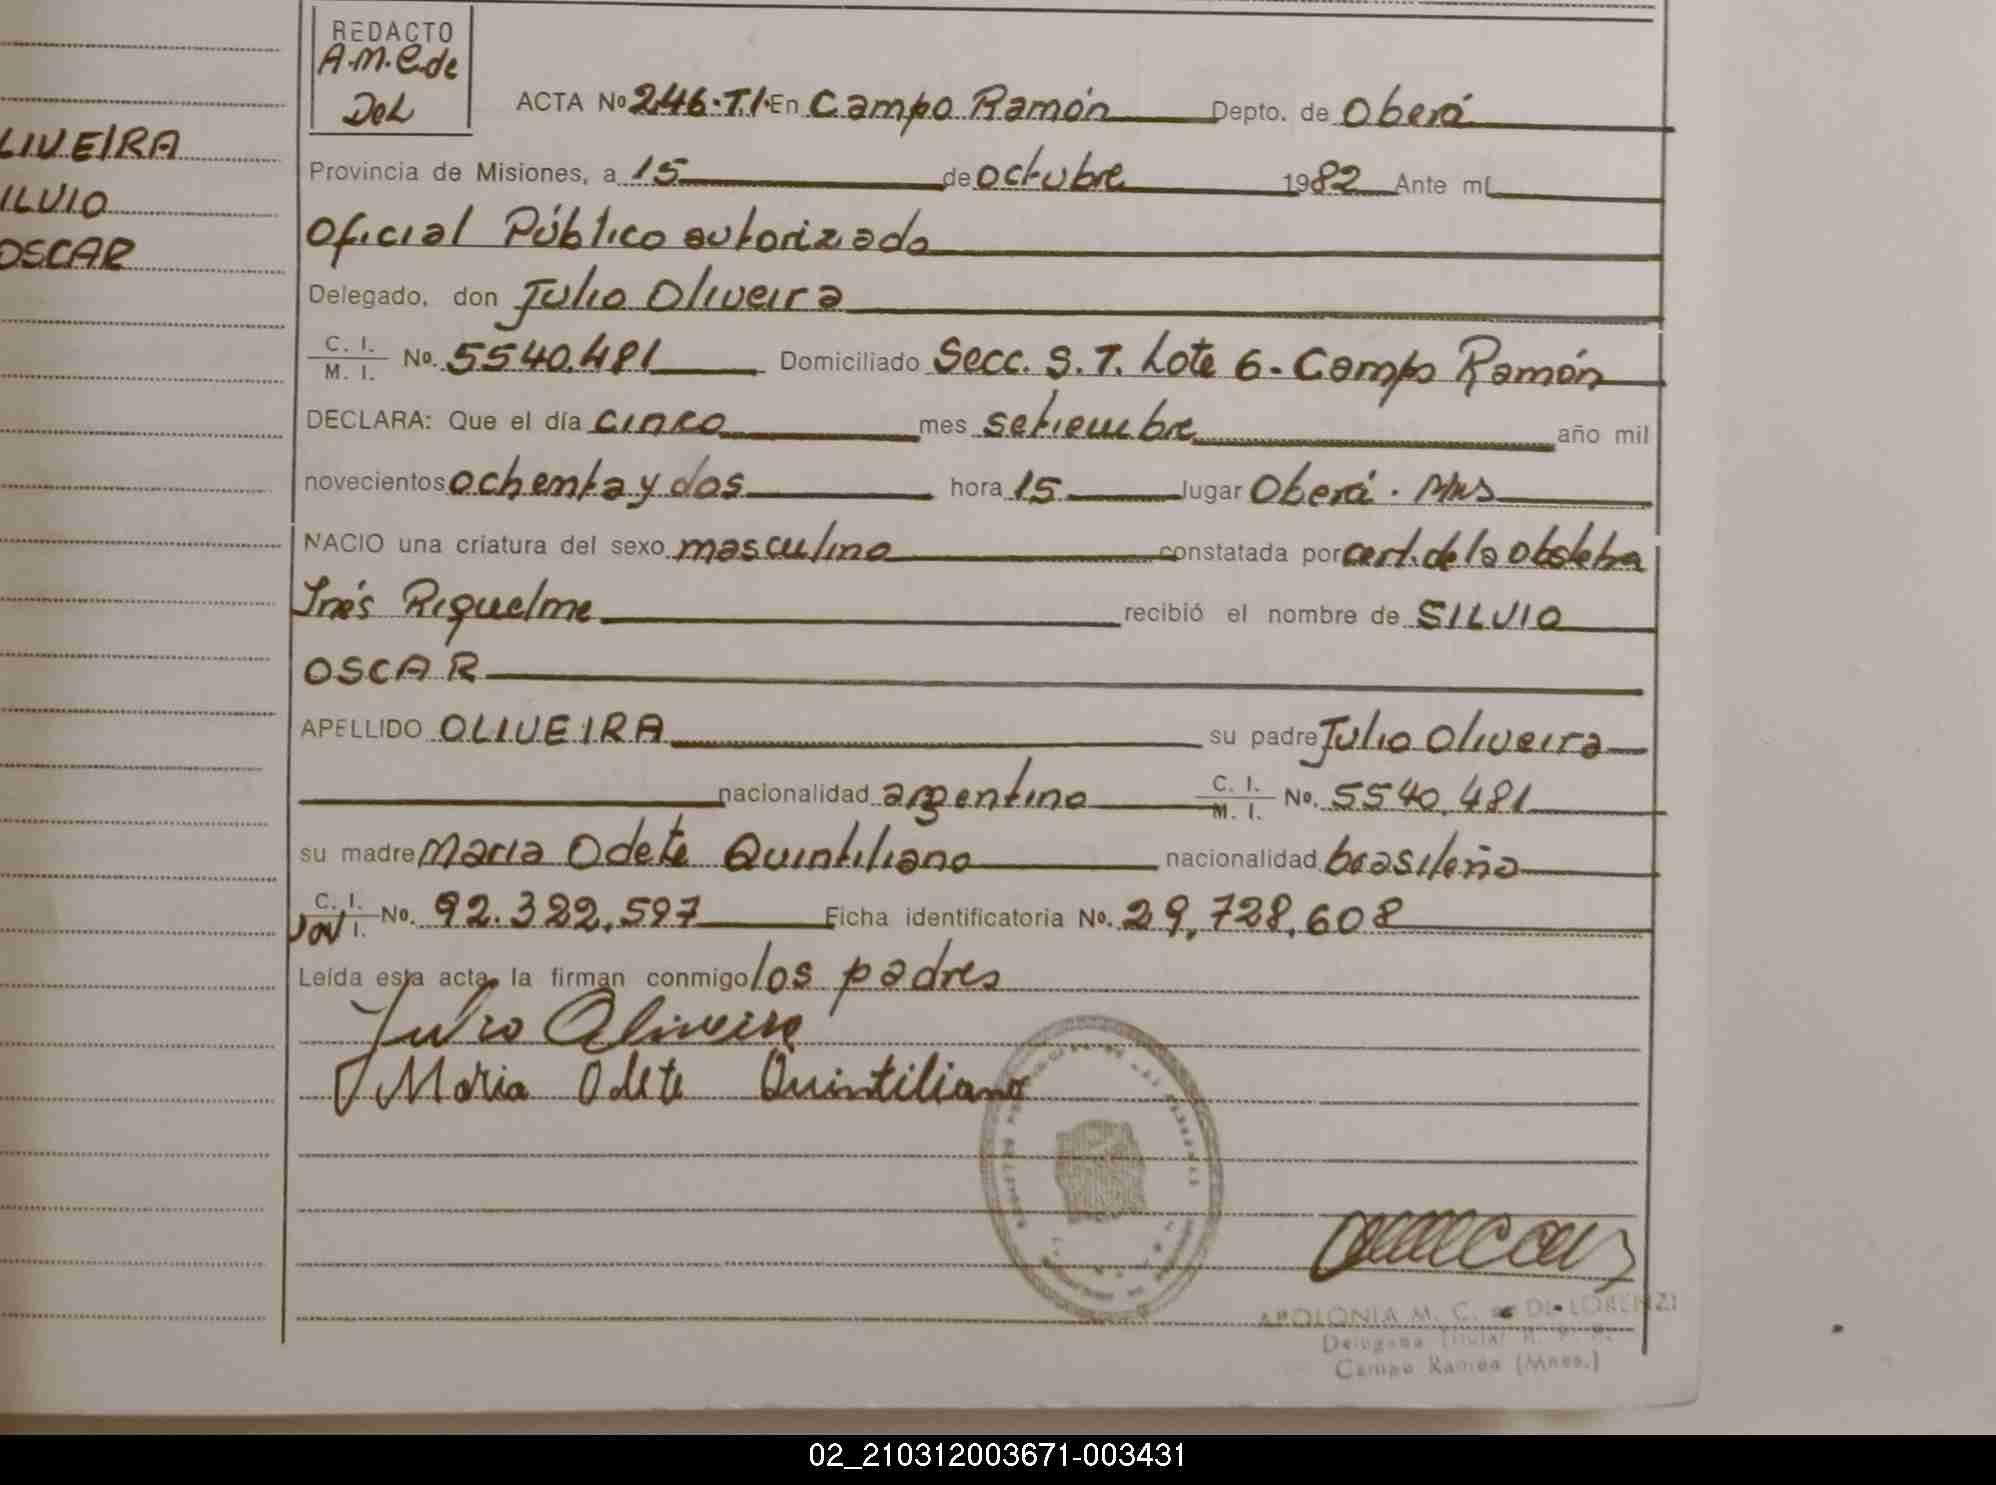 LIVEIRA
ILVIO
OSCAR
REDACTO
A.M.C. de
DeL
ACTA No 246.T.I. En Campo Ramón Depto. de Oberá
Provincia de Misiones, a 15 de octubre 1982 Ante mí
Oficial Público autorizado
Delegado, don Julio Oliveira
C. I. / M. I. No. 5540.481 Domiciliado Secc. S. T. Lote 6 - Campo Ramón
DECLARA: Que el día cinco mes setiembre año mil
novecientos ochenta y dos hora 15 lugar Oberá. Mns
NACIO una criatura del sexo masculino constatada por cert. de la obstetra
Inés Riquelme recibió el nombre de SILVIO
OSCAR
APELLIDO OLIVEIRA su padre Julio Oliveira
nacionalidad argentino C. I. / M. I. No. 5540.481
su madre Maria Odete Quintiliano nacionalidad brasileña
C. I. No. 92.322.597 Ficha identificatoria No. 29.728.608
Leída esta acta, la firman conmigo los padres
Julio Oliveira
Maria Odete Quintiliano
APOLONIA M. C. de DE LORENZI
Delegada Titular R. P.
Campo Ramón (Mnes.)
02_210312003671-003431